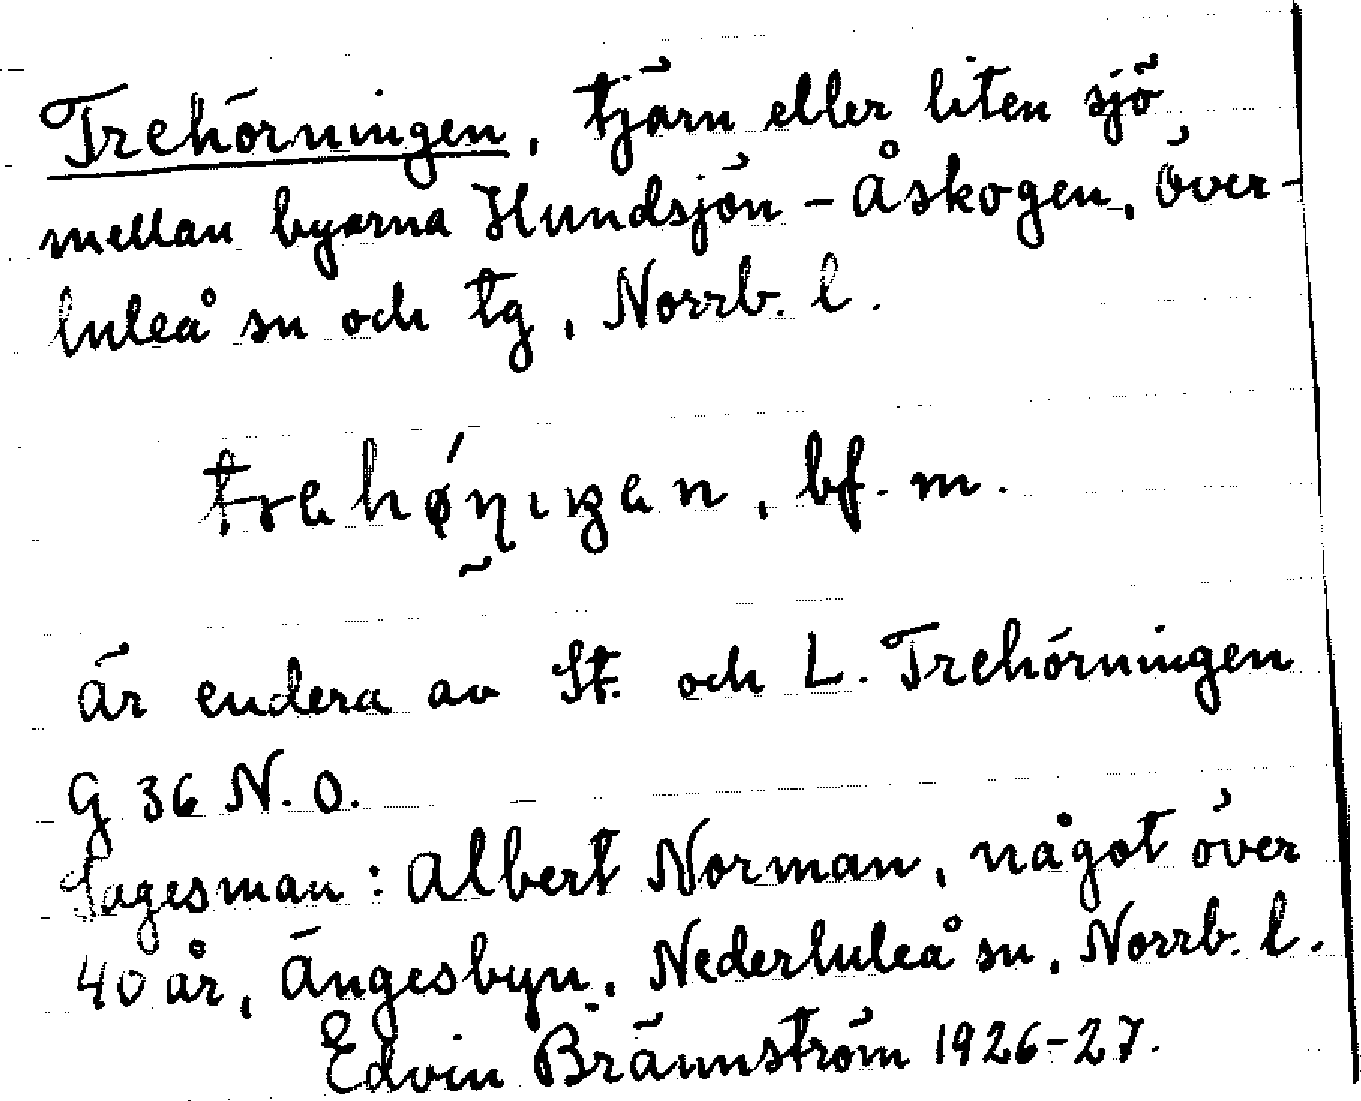 Trehörningen, tjärn eller liten sjö
mellan byarna Hundsjön - Åskogen, Över-
luleå sn och tg, Norrb. l.
trehǿ̰ɳıŋen, bf. m.
är endera av St. och L. Trehörningen
G 36 N.O.
Sagesman: Albert Norman, något över
40 år, Ängesbyn, Nederluleå sn, Norrb. l.
Edvin Brännström 1926-27.